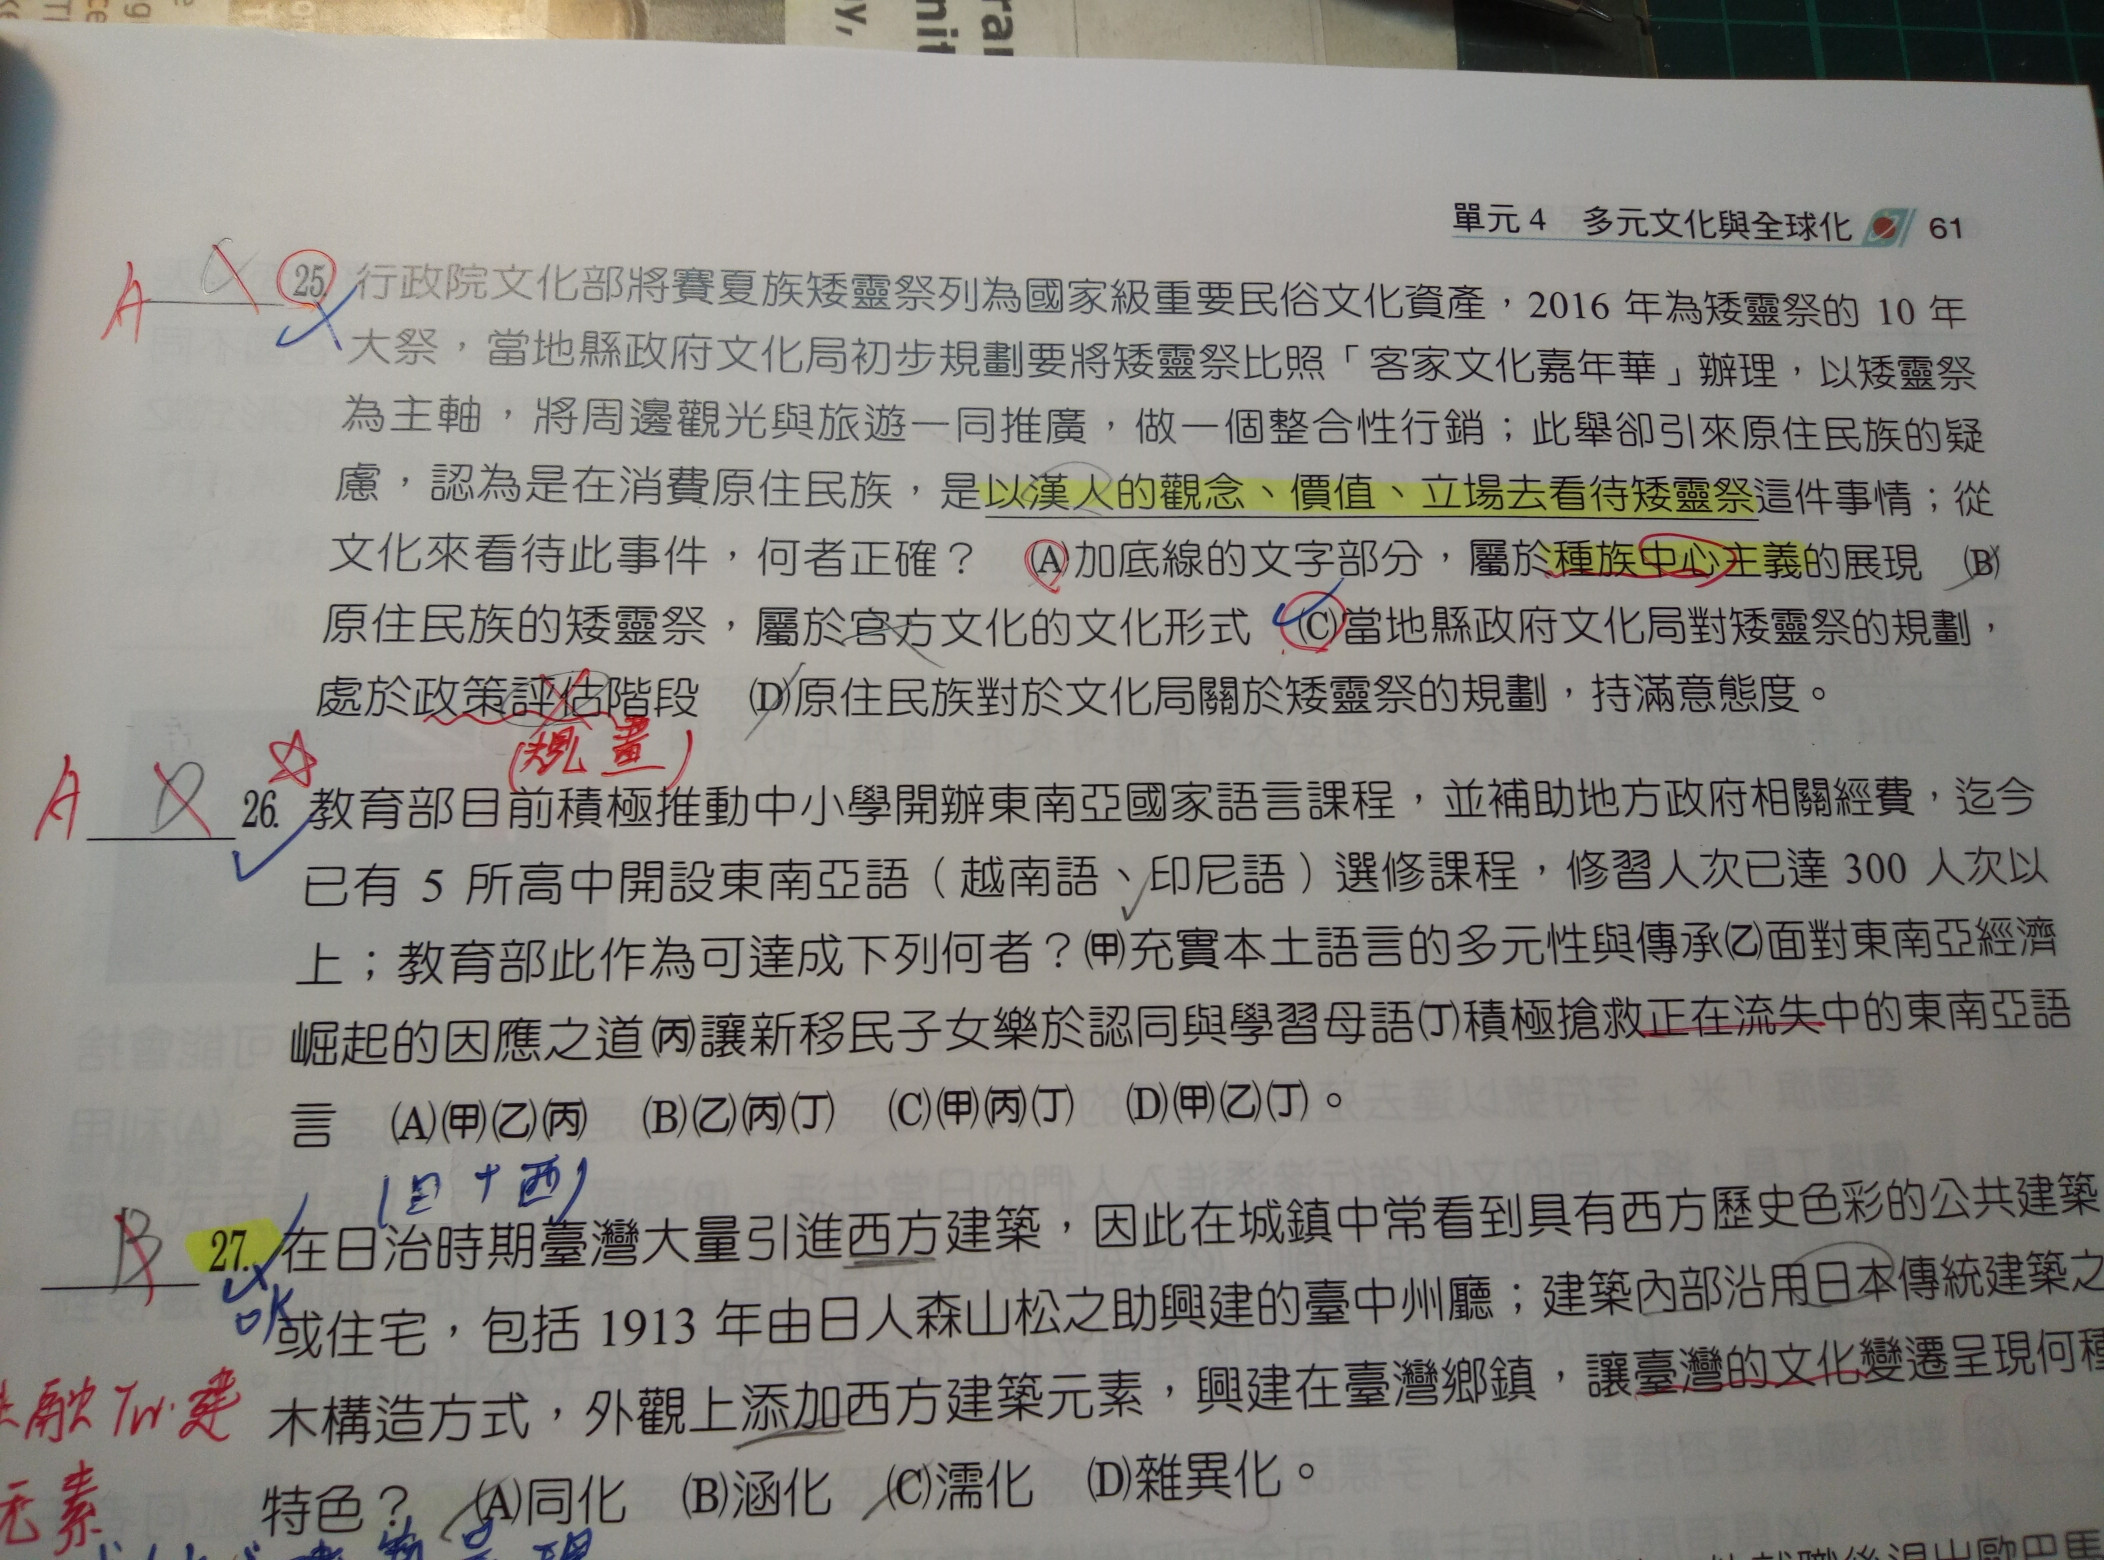 單元4 多元文化與全球化 61
A C 25. 行政院文化部將賽夏族矮靈祭列為國家級重要民俗文化資產，2016 年為矮靈祭的 10 年
大祭，當地縣政府文化局初步規劃要將矮靈祭比照「客家文化嘉年華」辦理，以矮靈祭
為主軸，將周邊觀光與旅遊一同推廣，做一個整合性行銷；此舉卻引來原住民族的疑
慮，認為是在消費原住民族，是以漢人的觀念、價值、立場去看待矮靈祭這件事情；從
文化來看待此事件，何者正確？ (A)加底線的文字部分，屬於種族中心主義的展現 (B)
原住民族的矮靈祭，屬於官方文化的文化形式 (C)當地縣政府文化局對矮靈祭的規劃，
處於政策評估階段 (D)原住民族對於文化局關於矮靈祭的規劃，持滿意態度。
(規畫)
A D 26. 教育部目前積極推動中小學開辦東南亞國家語言課程，並補助地方政府相關經費，迄今
已有 5 所高中開設東南亞語（越南語、印尼語）選修課程，修習人次已達 300 人次以
上；教育部此作為可達成下列何者？(甲)充實本土語言的多元性與傳承(乙)面對東南亞經濟
崛起的因應之道(丙)讓新移民子女樂於認同與學習母語(丁)積極搶救正在流失中的東南亞語
言 (A)(甲)(乙)(丙) (B)(乙)(丙)(丁) (C)(甲)(丙)(丁) (D)(甲)(乙)(丁)。
(日+西)
B 27. 在日治時期臺灣大量引進西方建築，因此在城鎮中常看到具有西方歷史色彩的公共建築
OK 或住宅，包括 1913 年由日人森山松之助興建的臺中州廳；建築內部沿用日本傳統建築之
融TW.建 木構造方式，外觀上添加西方建築元素，興建在臺灣鄉鎮，讓臺灣的文化變遷呈現何種
元素 特色？ (A)同化 (B)涵化 (C)濡化 (D)雜異化。